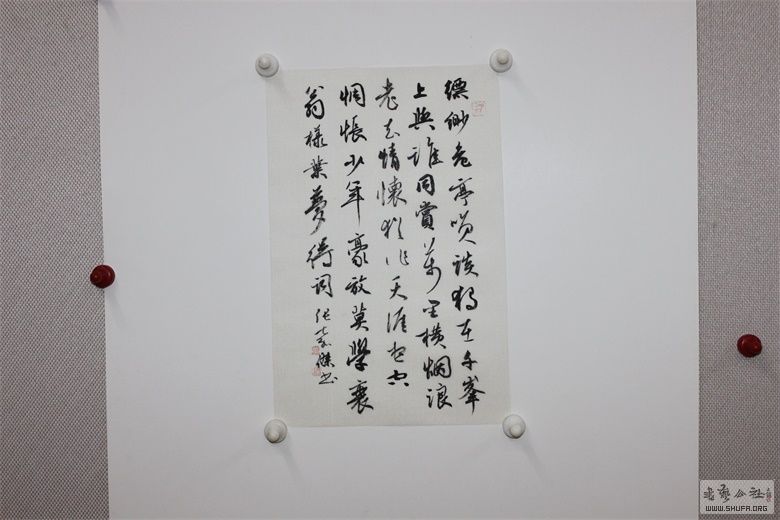 缥缈危亭笑谈独在千峰
上与谁同赏万里横烟浪
老去情怀犹作天涯想空
惆怅少年豪放莫学衰
翁样叶梦得词 张嘉杰书
书艺公社
WWW.SHUFA.ORG